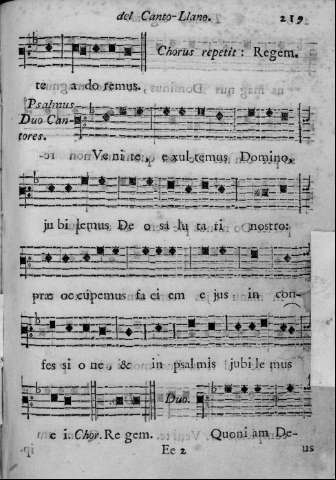 del Canto-Llano. 219
Chorus repetit: Regem.
te a do remus.
Psalmus
Duo Can-
tores.
Ve ni te, e xul temus Domino,
ju bi lemus De o sa lu ta ri nostro:
præ oc cupemus fa ci em e jus in con-
fes si o ne, & in psal mis jubi le mus
Duo.
e i. Chor. Re gem. Quoni am De-
Ee 2 us